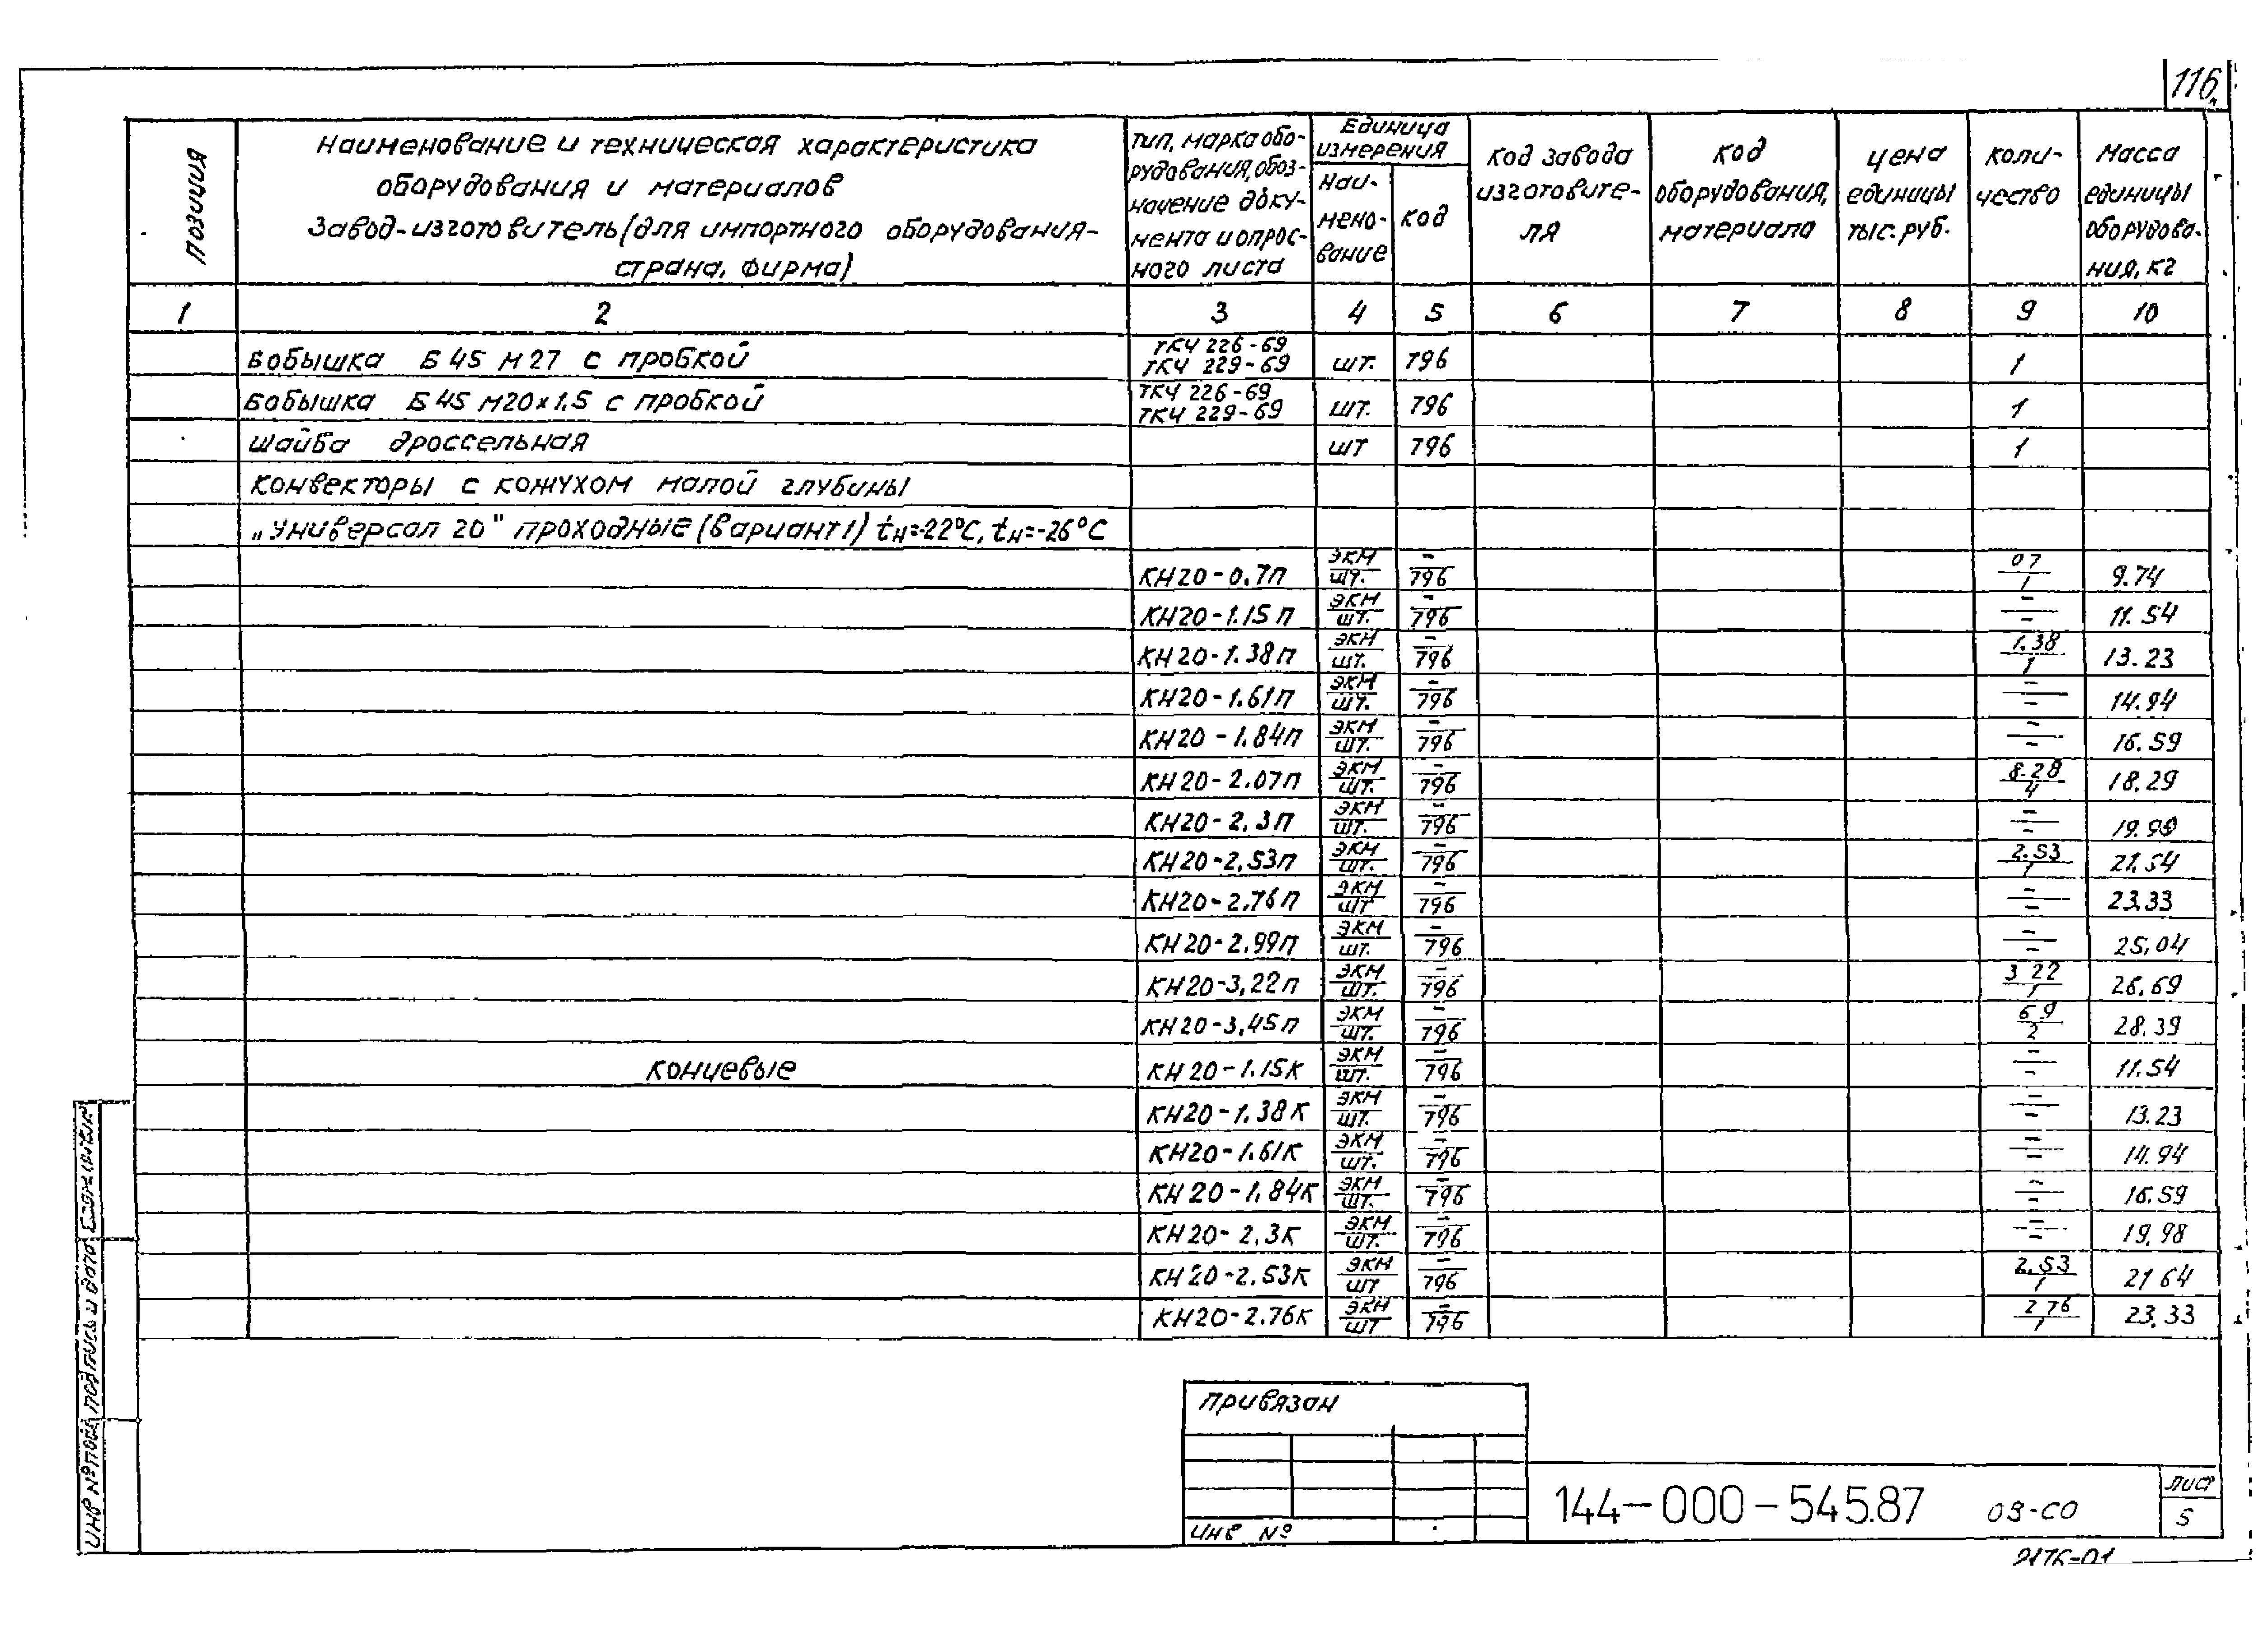 116
Позиция
Наименование и техническая характеристика
оборудования и материалов
Завод-изготовитель (для импортного оборудования-
страна, фирма)
Тип, марка обо-
рудования, обоз-
начение доку-
мента и опрос-
ного листа
Единица
измерения
Наи-
мено-
вание
код
код завода
изготовите-
ля
код
оборудования,
материала
цена
единицы
тыс. руб.
коли-
чество
Масса
единицы
оборудова-
ния, кг
1 2 3 4 5 6 7 8 9 10
Бобышка Б45 М27 с пробкой ТКЧ 226-69 ТКЧ 229-69 шт. 796 1
Бобышка Б45 М20х1.5 с пробкой ТКЧ 226-69 ТКЧ 229-69 шт. 796 1
Шайба дроссельная шт 796 1
Конвекторы с кожухом малой глубины
„Универсал 20" проходные (вариант 1) tн=-22°С, tн=-26°С
КН20-0.7п ЭКМ/шт. -/796 07/1 9.74
КН20-1.15п ЭКМ/шт. -/796 -/- 11.54
КН20-1.38п ЭКМ/шт. -/796 1.38/1 13.23
КН20-1.61п ЭКМ/шт. -/796 -/- 14.94
КН20-1.84п ЭКМ/шт. -/796 -/- 16.59
КН20-2.07п ЭКМ/шт. -/796 8.28/4 18.29
КН20-2.3п ЭКМ/шт. -/796 -/-
КН20-2,53п ЭКМ/шт. -/796 2.53/1 21.54
КН20-2.76п ЭКМ/шт -/796 -/- 23.33
КН20-2.99п ЭКМ/шт. -/796 -/- 25,04
КН20-3,22п ЭКМ/шт. -/796 3 22/1 26.69
КН20-3,45п ЭКМ/шт. -/796 6 9/2 28.39
концевые КН20-1.15К ЭКМ/шт. -/796 -/- 11.54
КН20-1.38К ЭКМ/шт. -/796 -/- 13.23
КН20-1.61К ЭКМ/шт. -/796 -/- 14.94
КН20-1.84К ЭКМ/шт. -/796 -/- 16.59
КН20-2.3К ЭКМ/шт. -/796 -/- 19,98
КН20-2.53К ЭКМ/шт -/796 2.53/1 21 64
КН20-2.76К ЭКМ/шт -/796 2 76/1 23.33
Инв № подл
Подпись и дата
Привязан
Инв №
144-000-545.87 ОВ-СО
Лист
5
2176-01